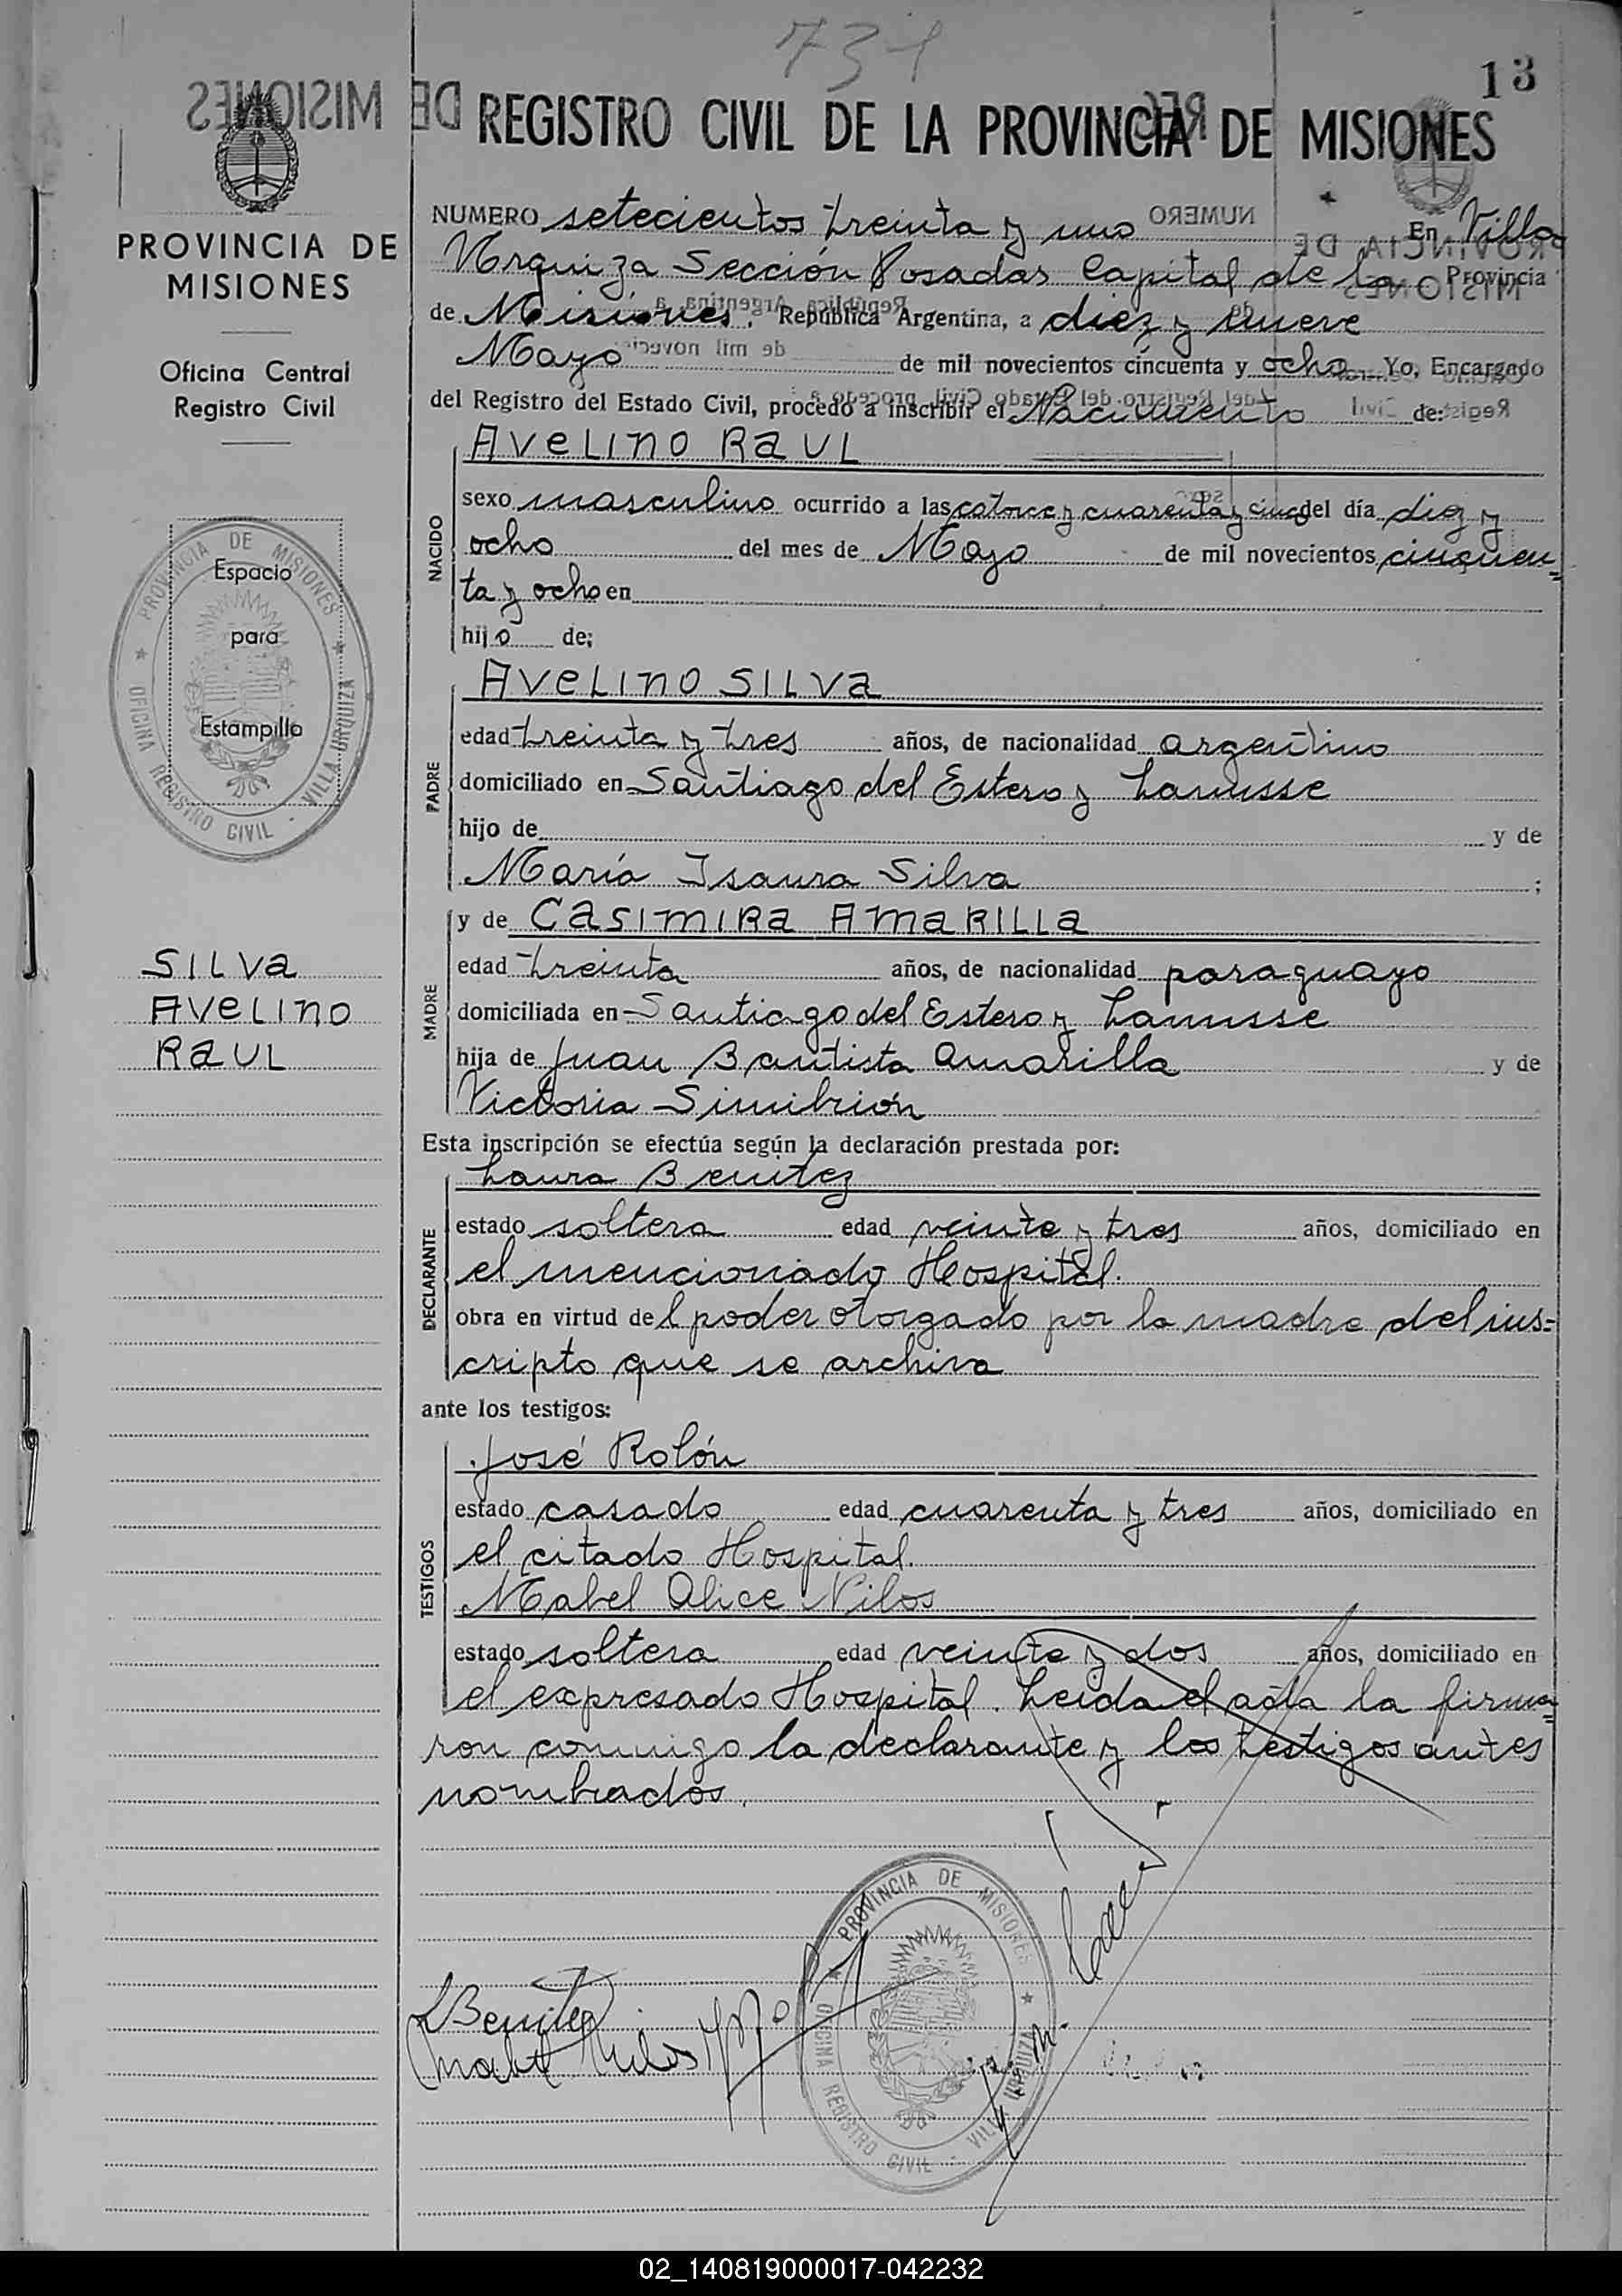 731
13
REGISTRO CIVIL DE LA PROVINCIA DE MISIONES
PROVINCIA DE
MISIONES
Oficina Central
Registro Civil
PROVINCIA DE MISIONES
OFICINA REGISTRO CIVIL - VILLA URQUIZA
Espacio
para
Estampilla
SILVA
AVELINO
RAUL
NUMERO setecientos treinta y uno En Villa
Urquiza Sección Posadas Capital de la Provincia
de Misiones, República Argentina, a diez y nueve
Mayo de mil novecientos cincuenta y ocho Yo, Encargado
del Registro del Estado Civil, procedo a inscribir el Nacimiento de:
NACIDO
AVELINO RAUL
sexo masculino ocurrido a las catorce y cuarenta y cinco del día diez y
ocho del mes de Mayo de mil novecientos cincuen=
ta y ocho en
hijo de:
PADRE
AVELINO SILVA
edad treinta y tres años, de nacionalidad argentino
domiciliado en Santiago del Estero y Lanusse
hijo de y de
María Isaura Silva ;
MADRE
y de CASIMIRA AMARILLA
edad treinta años, de nacionalidad paraguayo
domiciliada en Santiago del Estero y Lanusse
hija de Juan Bautista Amarilla y de
Victoria
Esta inscripción se efectúa según la declaración prestada por:
DECLARANTE
Laura Benitez
estado soltera edad veinte y tres años, domiciliado en
el mencionado Hospital.
obra en virtud del poder otorgado por la madre del ins=
cripto que se archiva
ante los testigos:
TESTIGOS
José Rolón
estado casado edad cuarenta y tres años, domiciliado en
el citado Hospital.
Mabel Alice Nilos
estado soltera edad veinte y dos años, domiciliado en
el expresado Hospital. Leida el acta la firma=
ron conmigo la declarante y los testigos antes
nombrados.
PROVINCIA DE MISIONES
OFICINA REGISTRO CIVIL - VILLA URQUIZA
LBenitez
Mabel Nilos
02_140819000017-042232